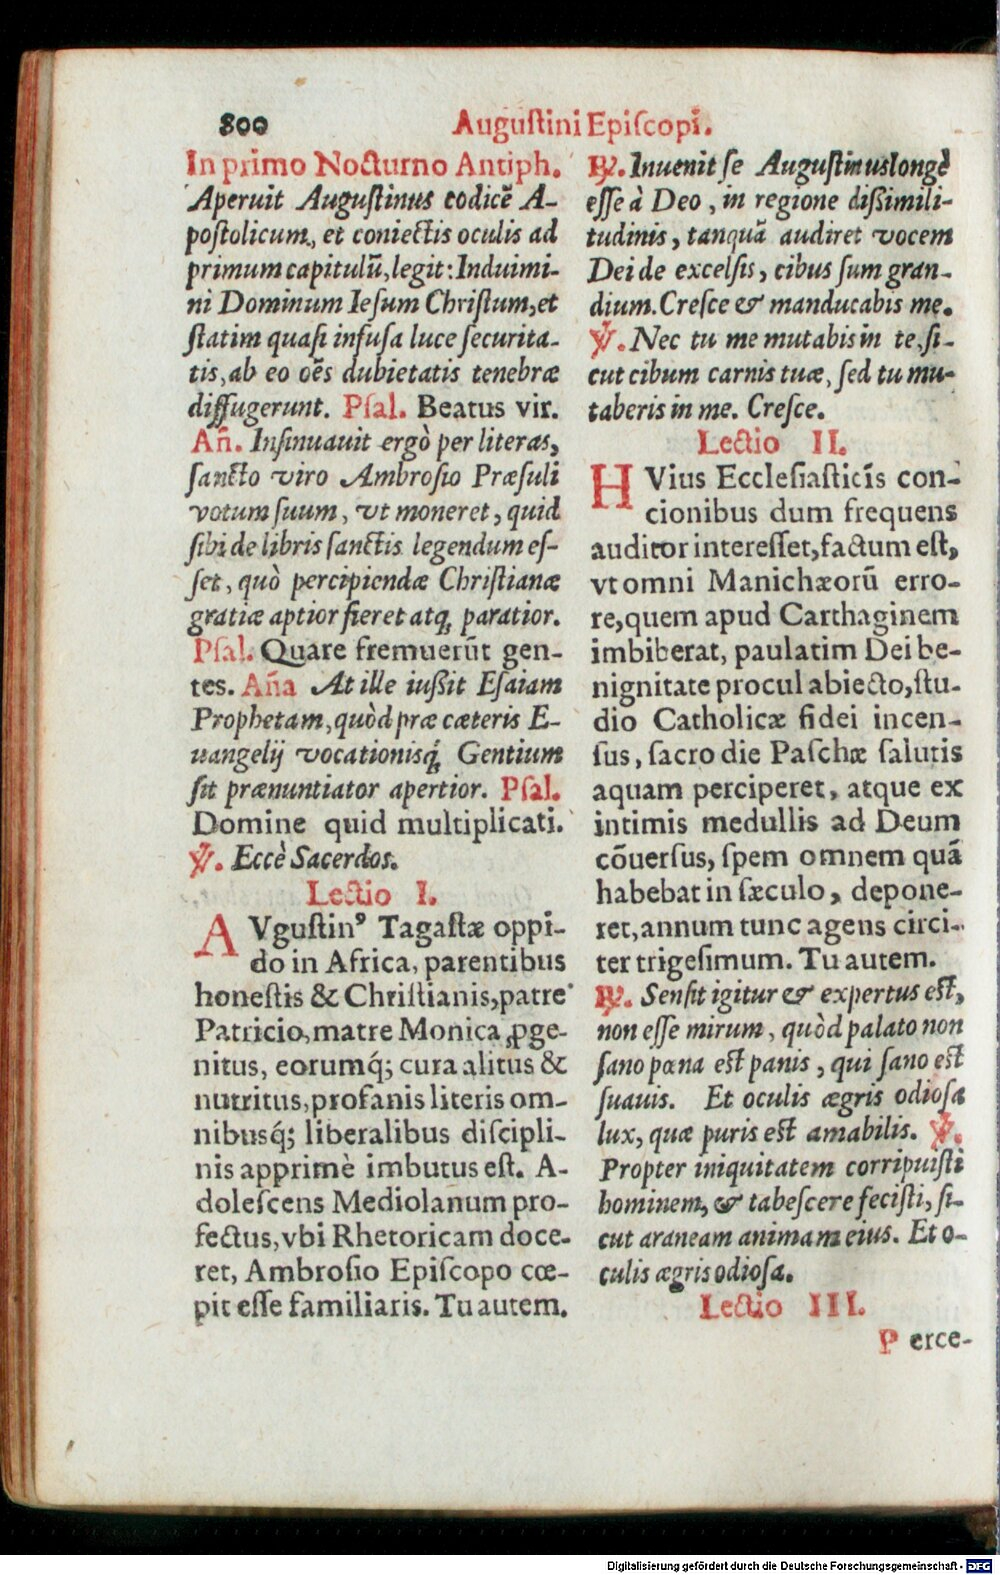 800
Auguſtini Epiſcopi.
In primo Nocturno Antiph.
Aperuit Auguſtinus codicẽ A-
poſtolicum, et coniectis oculis ad
primum capitulũ, legit: Induimi-
ni Dominum Ieſum Chriſtum, et
ſtatim quaſi infuſa luce ſecurita-
tis, ab eo oẽs dubietatis tenebræ
diffugerunt. Pſal. Beatus vir.
Añ. Inſinuauit ergò per literas,
ſancto viro Ambroſio Præſuli
votum ſuum, vt moneret, quid
ſibi de libris ſanctis legendum eſ-
ſet, quò percipiendæ Chriſtianæ
gratiæ aptior fieret atq; paratior.
Pſal. Quare fremuerũt gen-
tes. Aña At ille iußit Eſaiam
Prophetam, quòd præ cæteris E-
uangelij vocationisq́; Gentium
ſit prænuntiator apertior. Pſal.
Domine quid multiplicati.
℣. Eccè Sacerdos.
Lectio I.
AVguſtinꝰ Tagaſtæ oppi-
do in Africa, parentibus
honeſtis & Chriſtianis, patre
Patricio, matre Monica ꝓge-
nitus, eorumq́; cura alitus &
nutritus, profanis literis om-
nibusq́; liberalibus diſcipli-
nis apprimè imbutus eſt. A-
doleſcens Mediolanum pro-
fectus, vbi Rhetoricam doce-
ret, Ambroſio Epiſcopo cœ-
pit eſſe familiaris. Tu autem.
℟. Inuenit ſe Auguſtinus longè
eſſe à Deo, in regione dißimili-
tudinis, tanquã audiret vocem
Dei de excelſis, cibus ſum gran-
dium. Creſce & manducabis me.
℣. Nec tu me mutabis in te, ſi-
cut cibum carnis tuæ, ſed tu mu-
taberis in me. Creſce.
Lectio II.
HVius Eccleſiaſticis con-
cionibus dum frequens
auditor intereſſet, factum eſt,
vt omni Manichæorũ erro-
re, quem apud Carthaginem
imbiberat, paulatim Dei be-
nignitate procul abiecto, ſtu-
dio Catholicæ fidei incen-
ſus, ſacro die Paſchæ ſalutis
aquam perciperet, atque ex
intimis medullis ad Deum
cõuerſus, ſpem omnem quã
habebat in ſæculo, depone-
ret, annum tunc agens circi-
ter trigeſimum. Tu autem.
℟. Senſit igitur & expertus eſt,
non eſſe mirum, quòd palato non
ſano pœna eſt panis, qui ſano eſt
ſuauis. Et oculis ægris odioſa
lux, quæ puris eſt amabilis. ℣.
Propter iniquitatem corripuiſti
hominem, & tabeſcere feciſti, ſi-
cut araneam animam eius. Et o-
culis ægris odioſa.
Lectio III.
Perce-
Digitalisierung gefördert durch die Deutsche Forschungsgemeinschaft - DFG